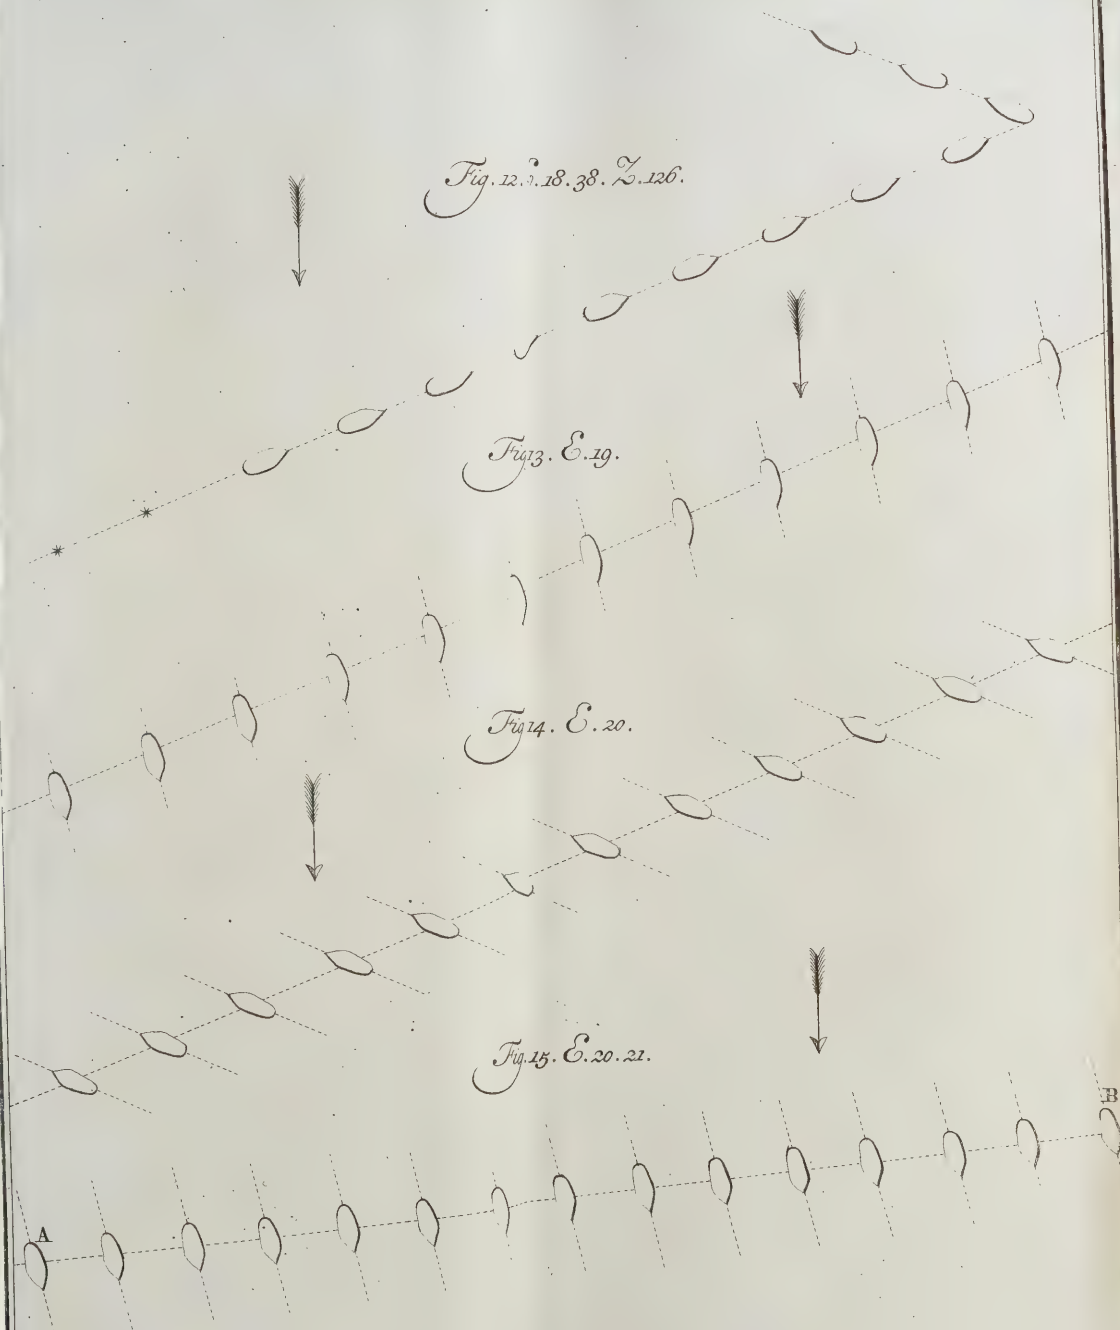 Fig. 12. 18. 38. Z. 126.
Fig 13. E. 19.
Fig 14. E. 20.
Fig. 15. E. 20. 21.
B
A